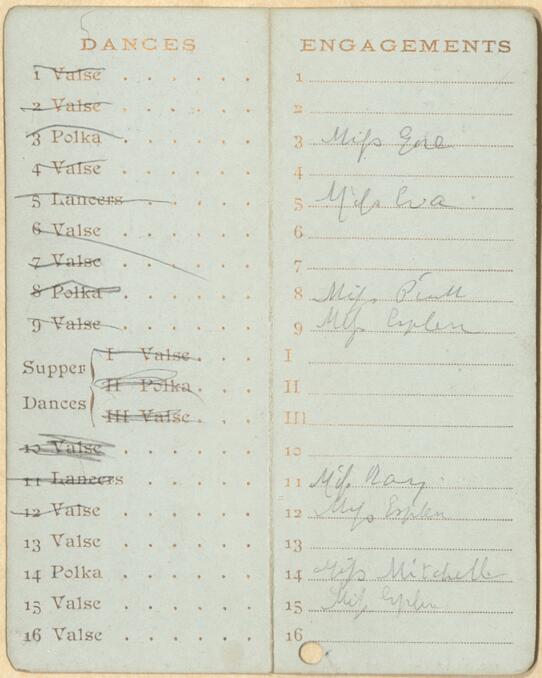 DANCES
1 Valse
2 Valse
3 Polka
4 Valse
5 Lancers
6 Valse
7 Valse
8 Polka
9 Valse
Supper Dances
I Valse
II Polka
III Valse
10 Valse
11 Lancers
12 Valse
13 Valse
14 Polka
15 Valse
16 Valse
ENGAGEMENTS
1
2
3 Miss
4
5 Miss Eva
6
7
8 Miss
9 Miss Esplen
I
II
III
10
11 Miss
12 Miss Esplen
13
14 Miss Mitchell
15 Miss Esplen
16